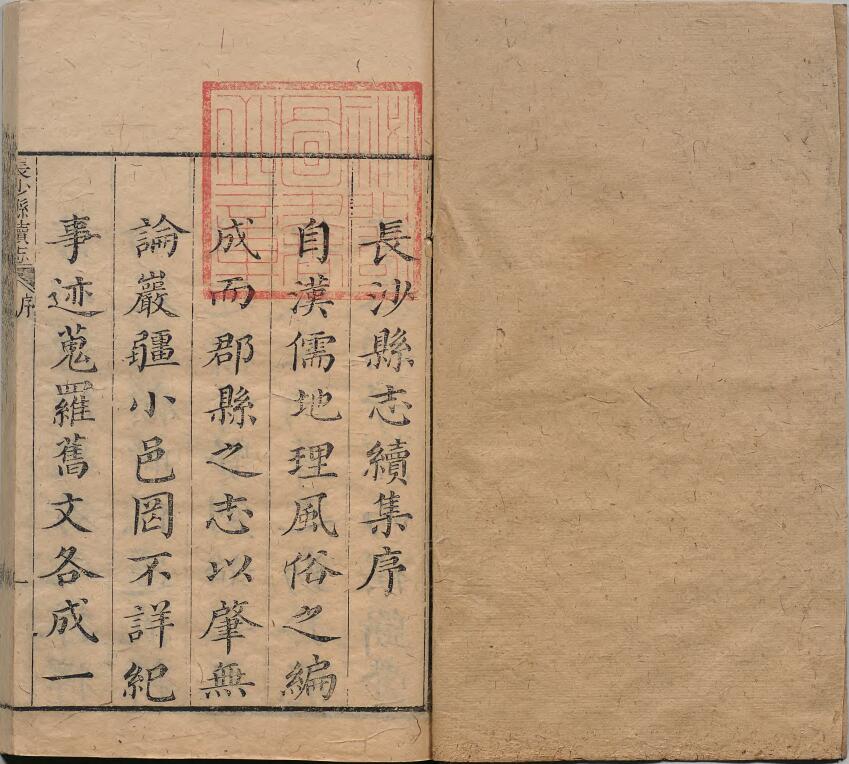 長沙縣志續集序
自漢儒地理風俗之編
成而郡縣之志以肇無
論巖疆小邑罔不詳紀
事迹蒐羅舊文各成一
長沙縣續志
序
一